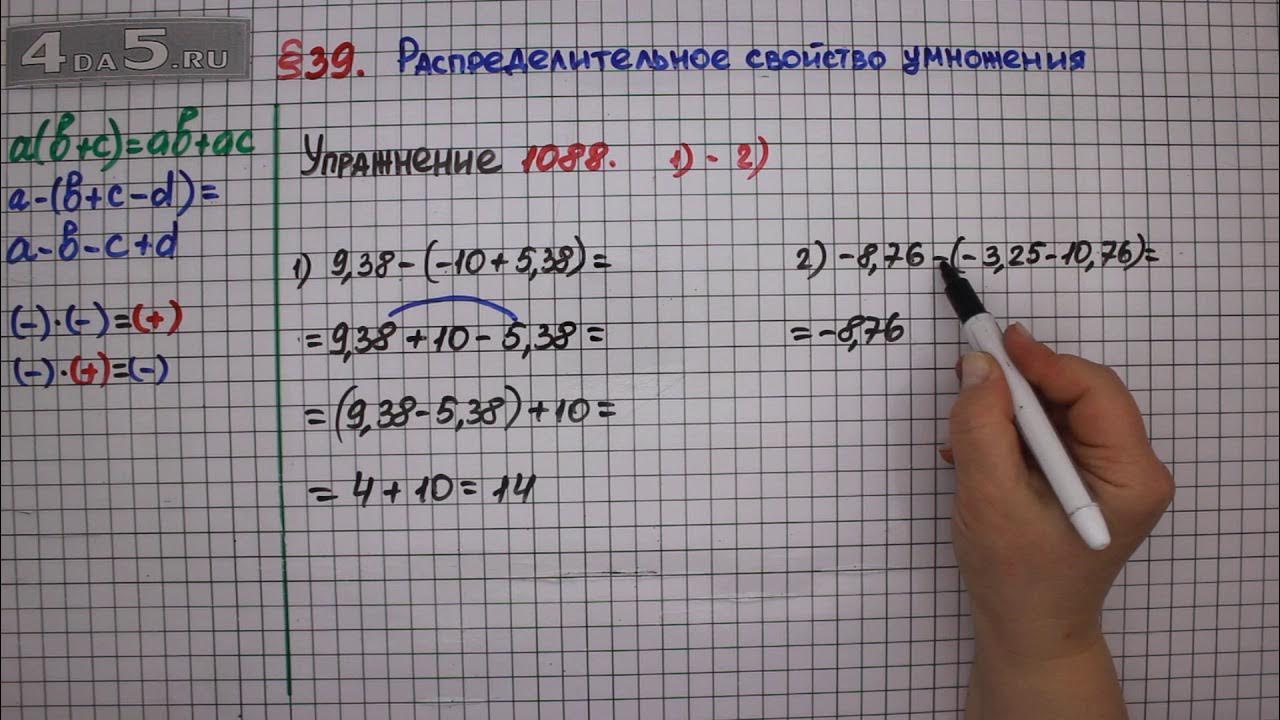 4DA5.RU
§39. Распределительное свойство умножения
a(b+c)=ab+ac
a-(b+c-d)=
a-b-c+d
(-)·(-)=(+)
(-)·(+)=(-)
Упражнение 1088. 1)-2)
1) 9,38-(-10+5,38)=
=9,38+10-5,38=
=(9,38-5,38)+10=
=4+10=14
2) -8,76-(-3,25-10,76)=
=-8,76